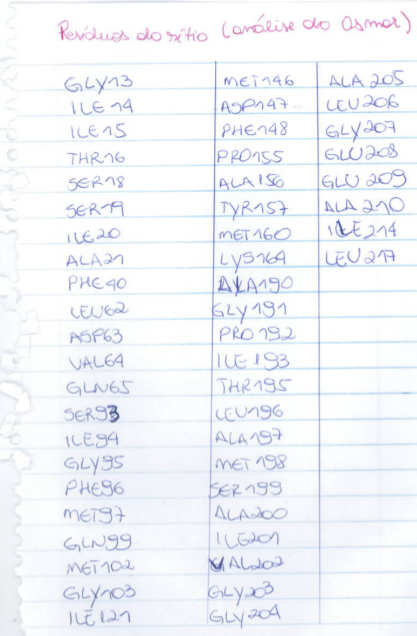 Resíduos do sítio (análise do Osmar)
GLY13
ILE14
ILE15
THR16
SER18
SER19
ILE20
ALA21
PHE40
LEU62
ASP63
VAL64
GLN65
SER93
ILE94
GLY95
PHE96
MET97
GLN99
MET102
GLY103
ILE121
MET146
ASP147
PHE148
PRO155
ALA156
TYR157
MET160
LYS164
ALA190
GLY191
PRO192
ILE193
THR195
LEU196
ALA197
MET198
SER199
ALA200
ILE201
VAL202
GLY203
GLY204
ALA205
LEU206
GLY207
GLU208
GLU209
ALA210
ILE214
LEU217